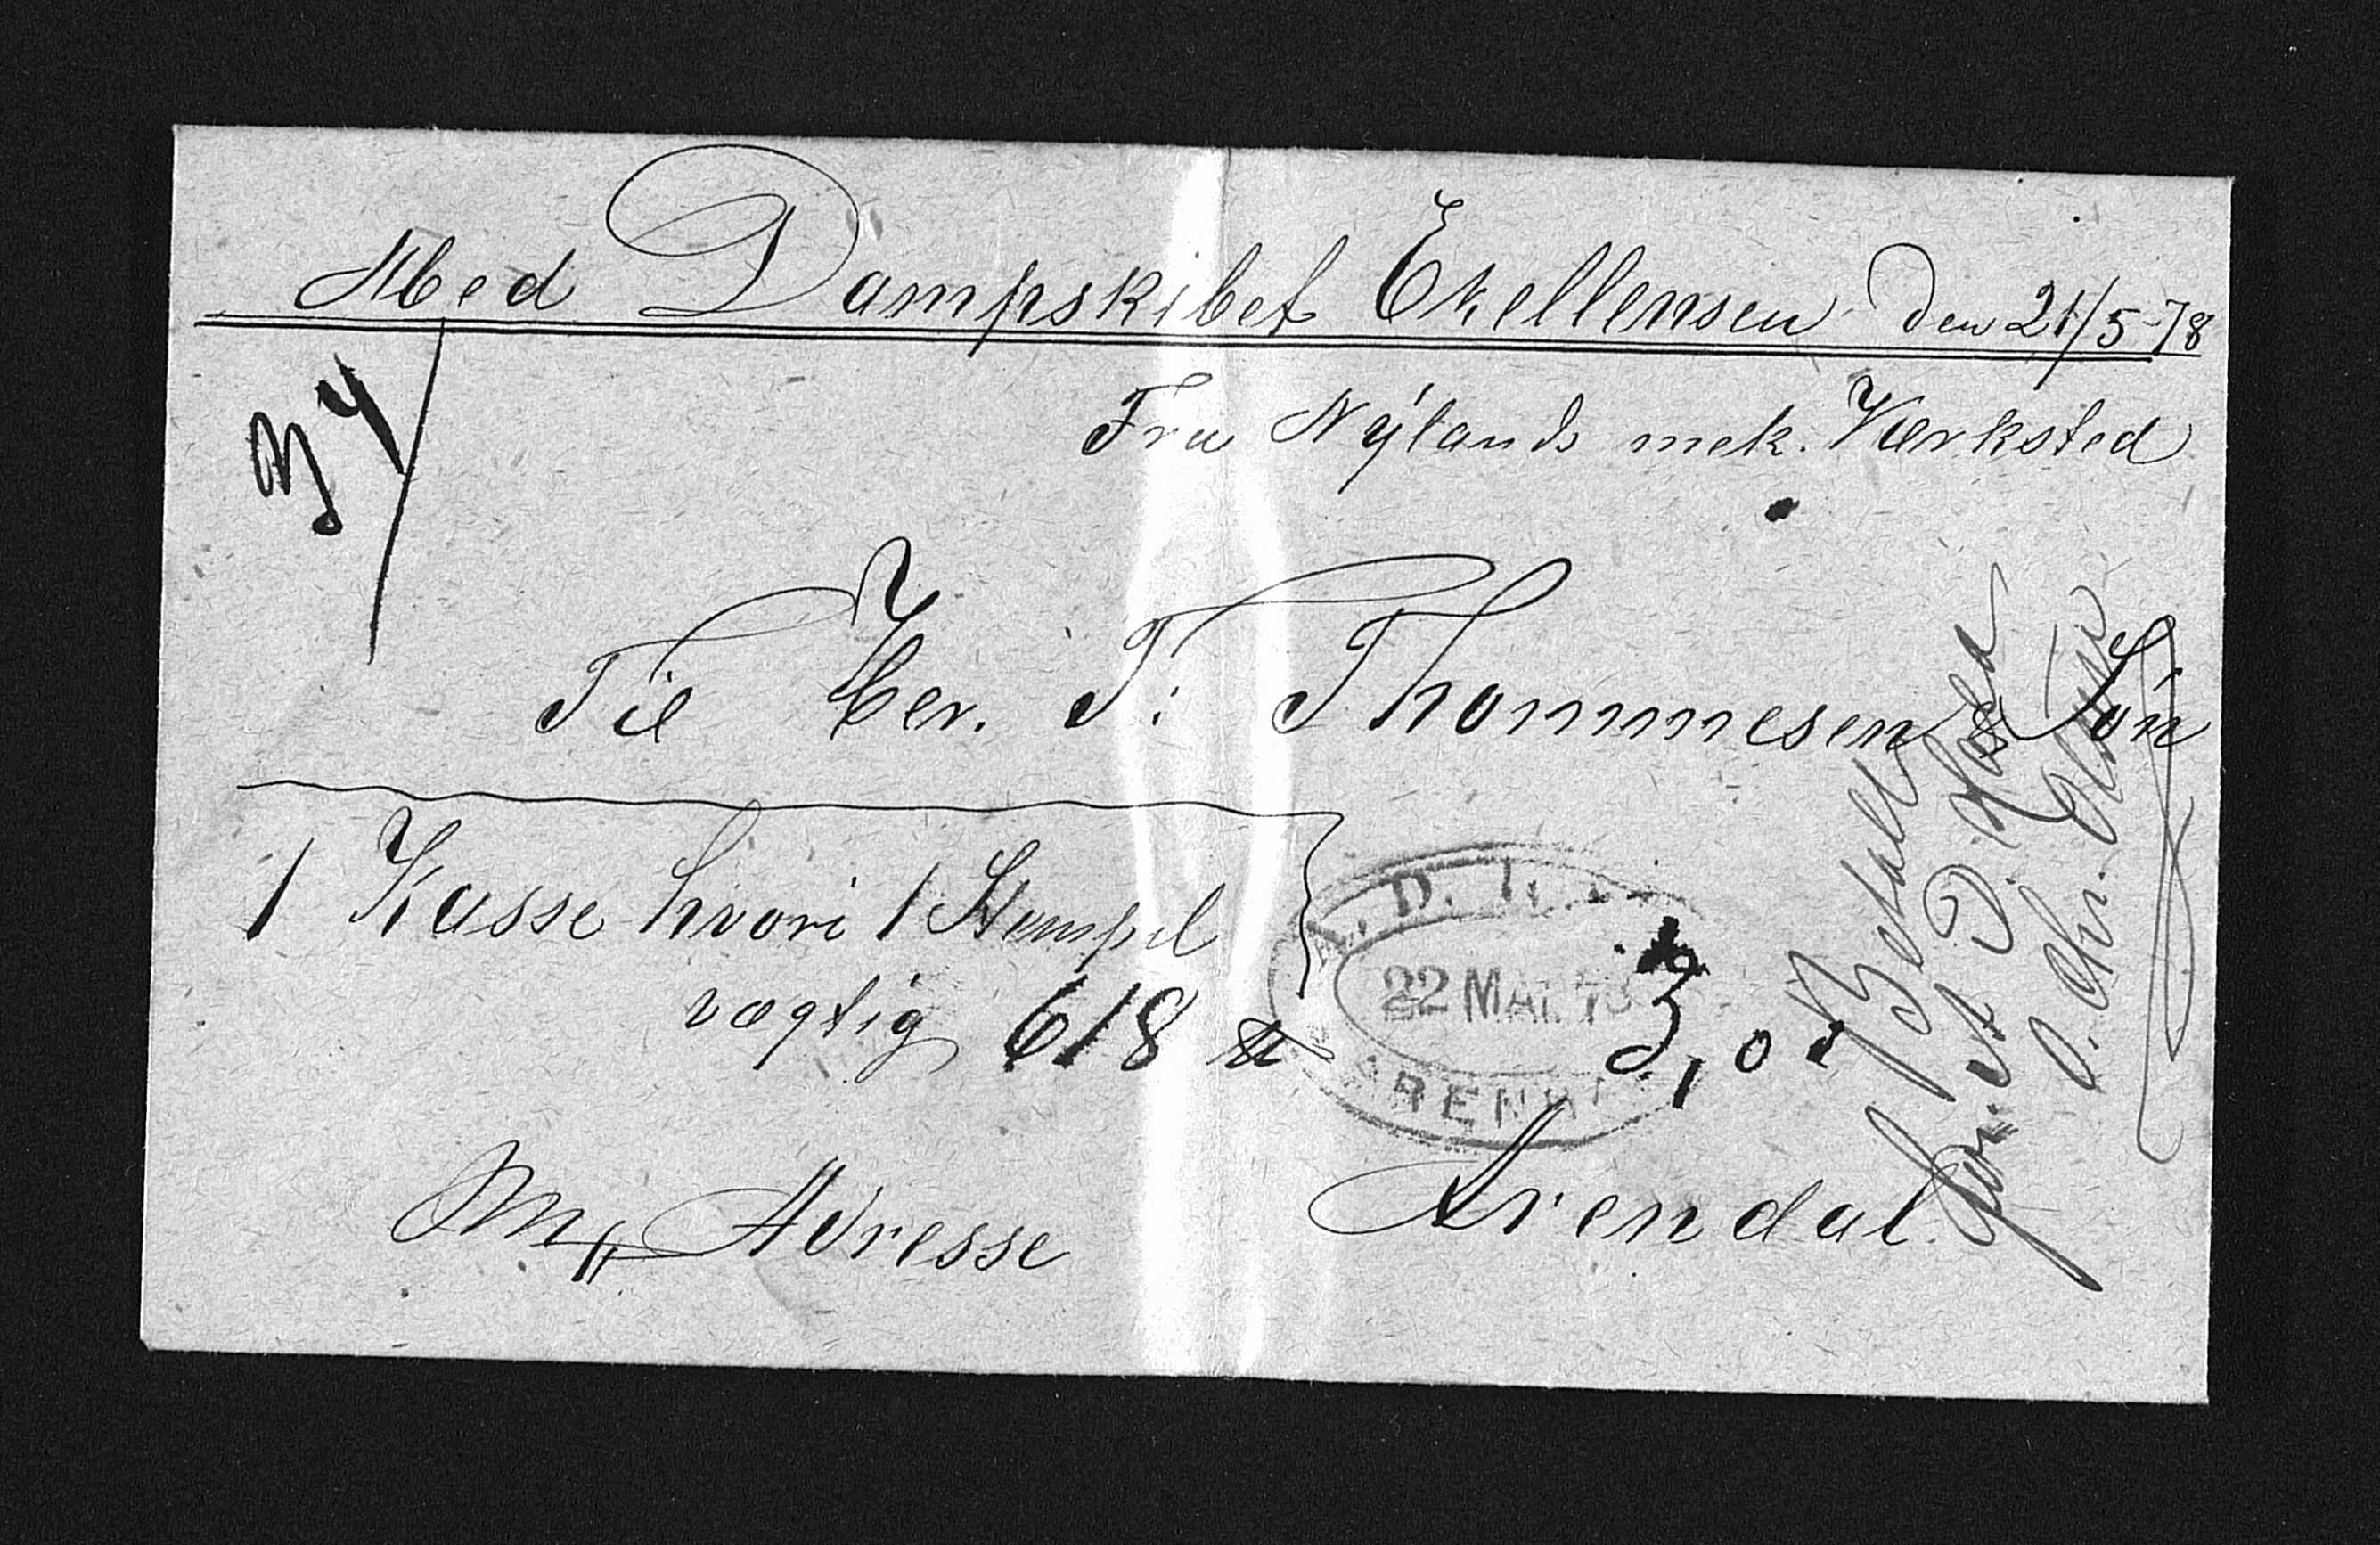 Med Dampskibet Exellensen Den 21/5-78
34
Fra Nýlands mek. Værksted
Til Her. T: Thommesen & Sön
1 Kasse hvori 1 Stempel
vægtig 618 ℔
A. D.
22 MAI. 78
ARENDAL
3,0
Betalt
for A D.
O. Chr. Olsen
M// Adresse
Arendal.